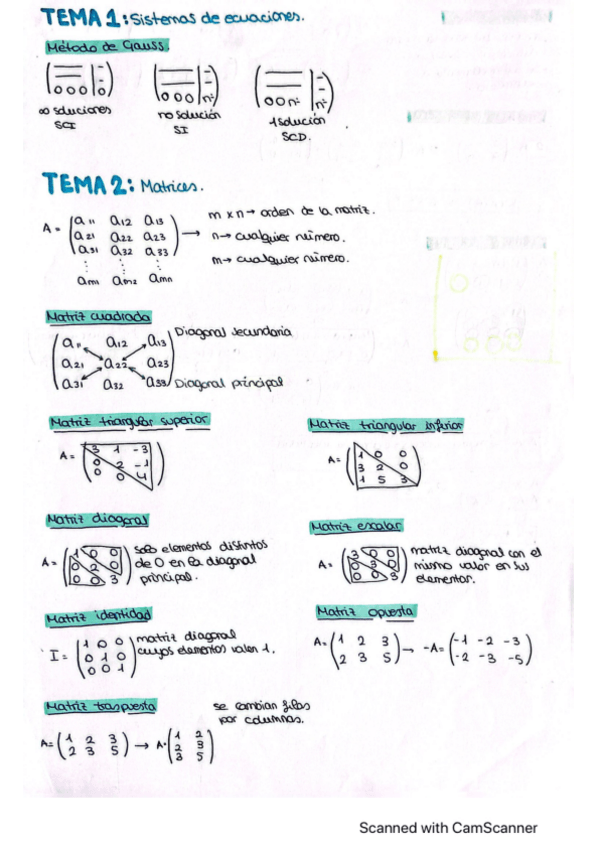 TEMA 1: Sistemas de ecuaciones.
Método de Gauss.
∞ soluciones
SCI
no solución
SI
1 solución
SCD.
TEMA 2: Matrices.
A = (a11 a12 a13
a21 a22 a23
a31 a32 a33
⋮ ⋮ ⋮
am1 am2 amn) →
m x n → orden de la matriz.
n → cualquier número.
m → cualquier número.
Matriz cuadrada
(a11 a12 a13
a21 a22 a23
a31 a32 a33)
Diagonal secundaria
Diagonal principal
Matriz triangular superior
A = (3 1 -3
0 2 -1
0 0 4)
Matriz triangular inferior
A = (1 0 0
3 2 0
1 5 3)
Matriz diagonal
A = (1 0 0
0 2 0
0 0 3)
solo elementos distintos
de 0 en la diagonal
principal.
Matriz escalar
A = (3 0 0
0 3 0
0 0 3)
matriz diagonal con el
mismo valor en sus
elementos.
Matriz identidad
I = (1 0 0
0 1 0
0 0 1)
matriz diagonal
cuyos elementos valen 1.
Matriz opuesta
A = (1 2 3
2 3 5) → -A = (-1 -2 -3
-2 -3 -5)
Matriz traspuesta
se cambian filas
por columnas.
A = (1 2 3
2 3 5) → A· (1 2
2 3
3 5)
Scanned with CamScanner